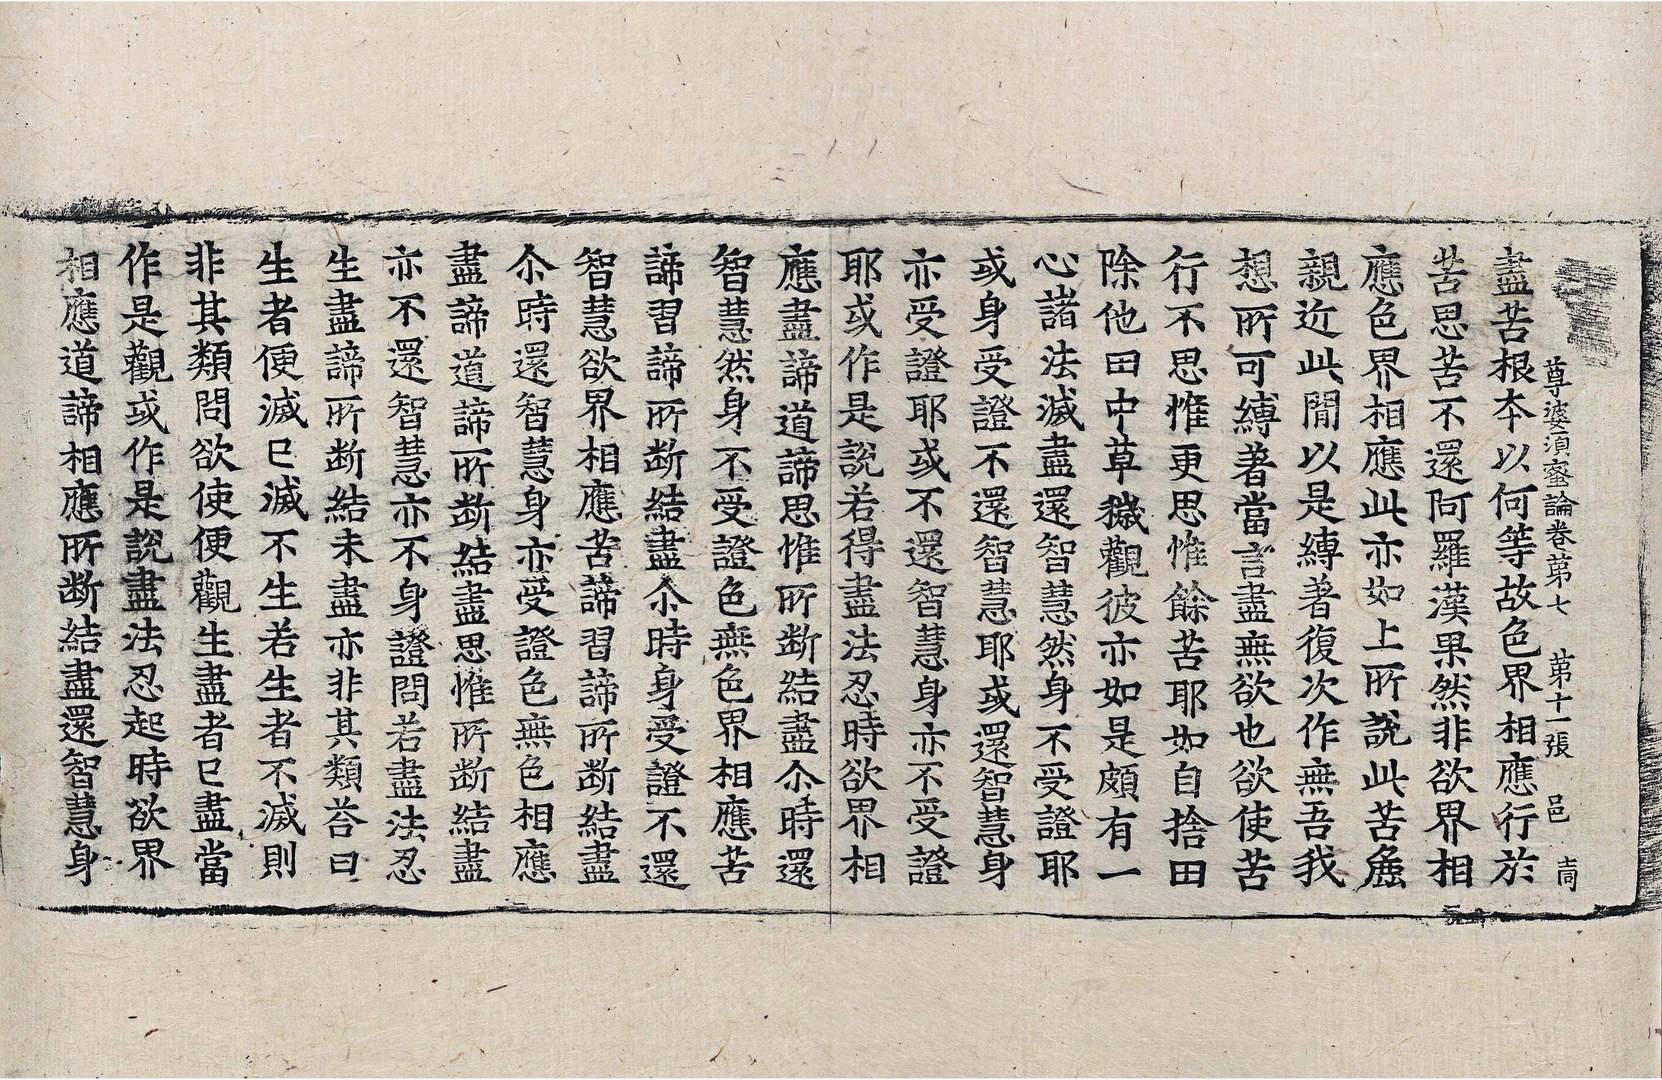 尊婆須蜜論卷第七 第十一張 邑
盡苦根本以何等故色界相應行於
苦思苦不還阿羅漢果然非欲界相
應色界相應此亦如上所說此苦麁
親近此間以是縛著復次作無吾我
想所可縛著當言盡無欲也欲使苦
行不思惟更思惟餘苦耶如自捨田
除他田中草穢觀彼亦如是頗有一
心諸法滅盡還智慧然身不受證耶
或身受證不還智慧耶或還智慧身
亦受證耶或不還智慧身亦不受證
耶或作是說若得盡法忍時欲界相
應盡諦道諦思惟所断結盡尒時還
智慧然身不受證色無色界相應苦
諦習諦所断結盡尒時身受證不還
智慧欲界相應苦諦習諦所断結盡
尒時還智慧身亦受證色無色相應
盡諦道諦所断結盡思惟所断結盡
亦不還智慧亦不身證問若盡法忍
生盡諦所断結未盡亦非其類荅曰
生者便滅已滅不生若生者不滅則
非其類問欲使便觀生盡者已盡當
作是觀或作是說盡法忍起時欲界
相應道諦相應所断結盡還智慧身